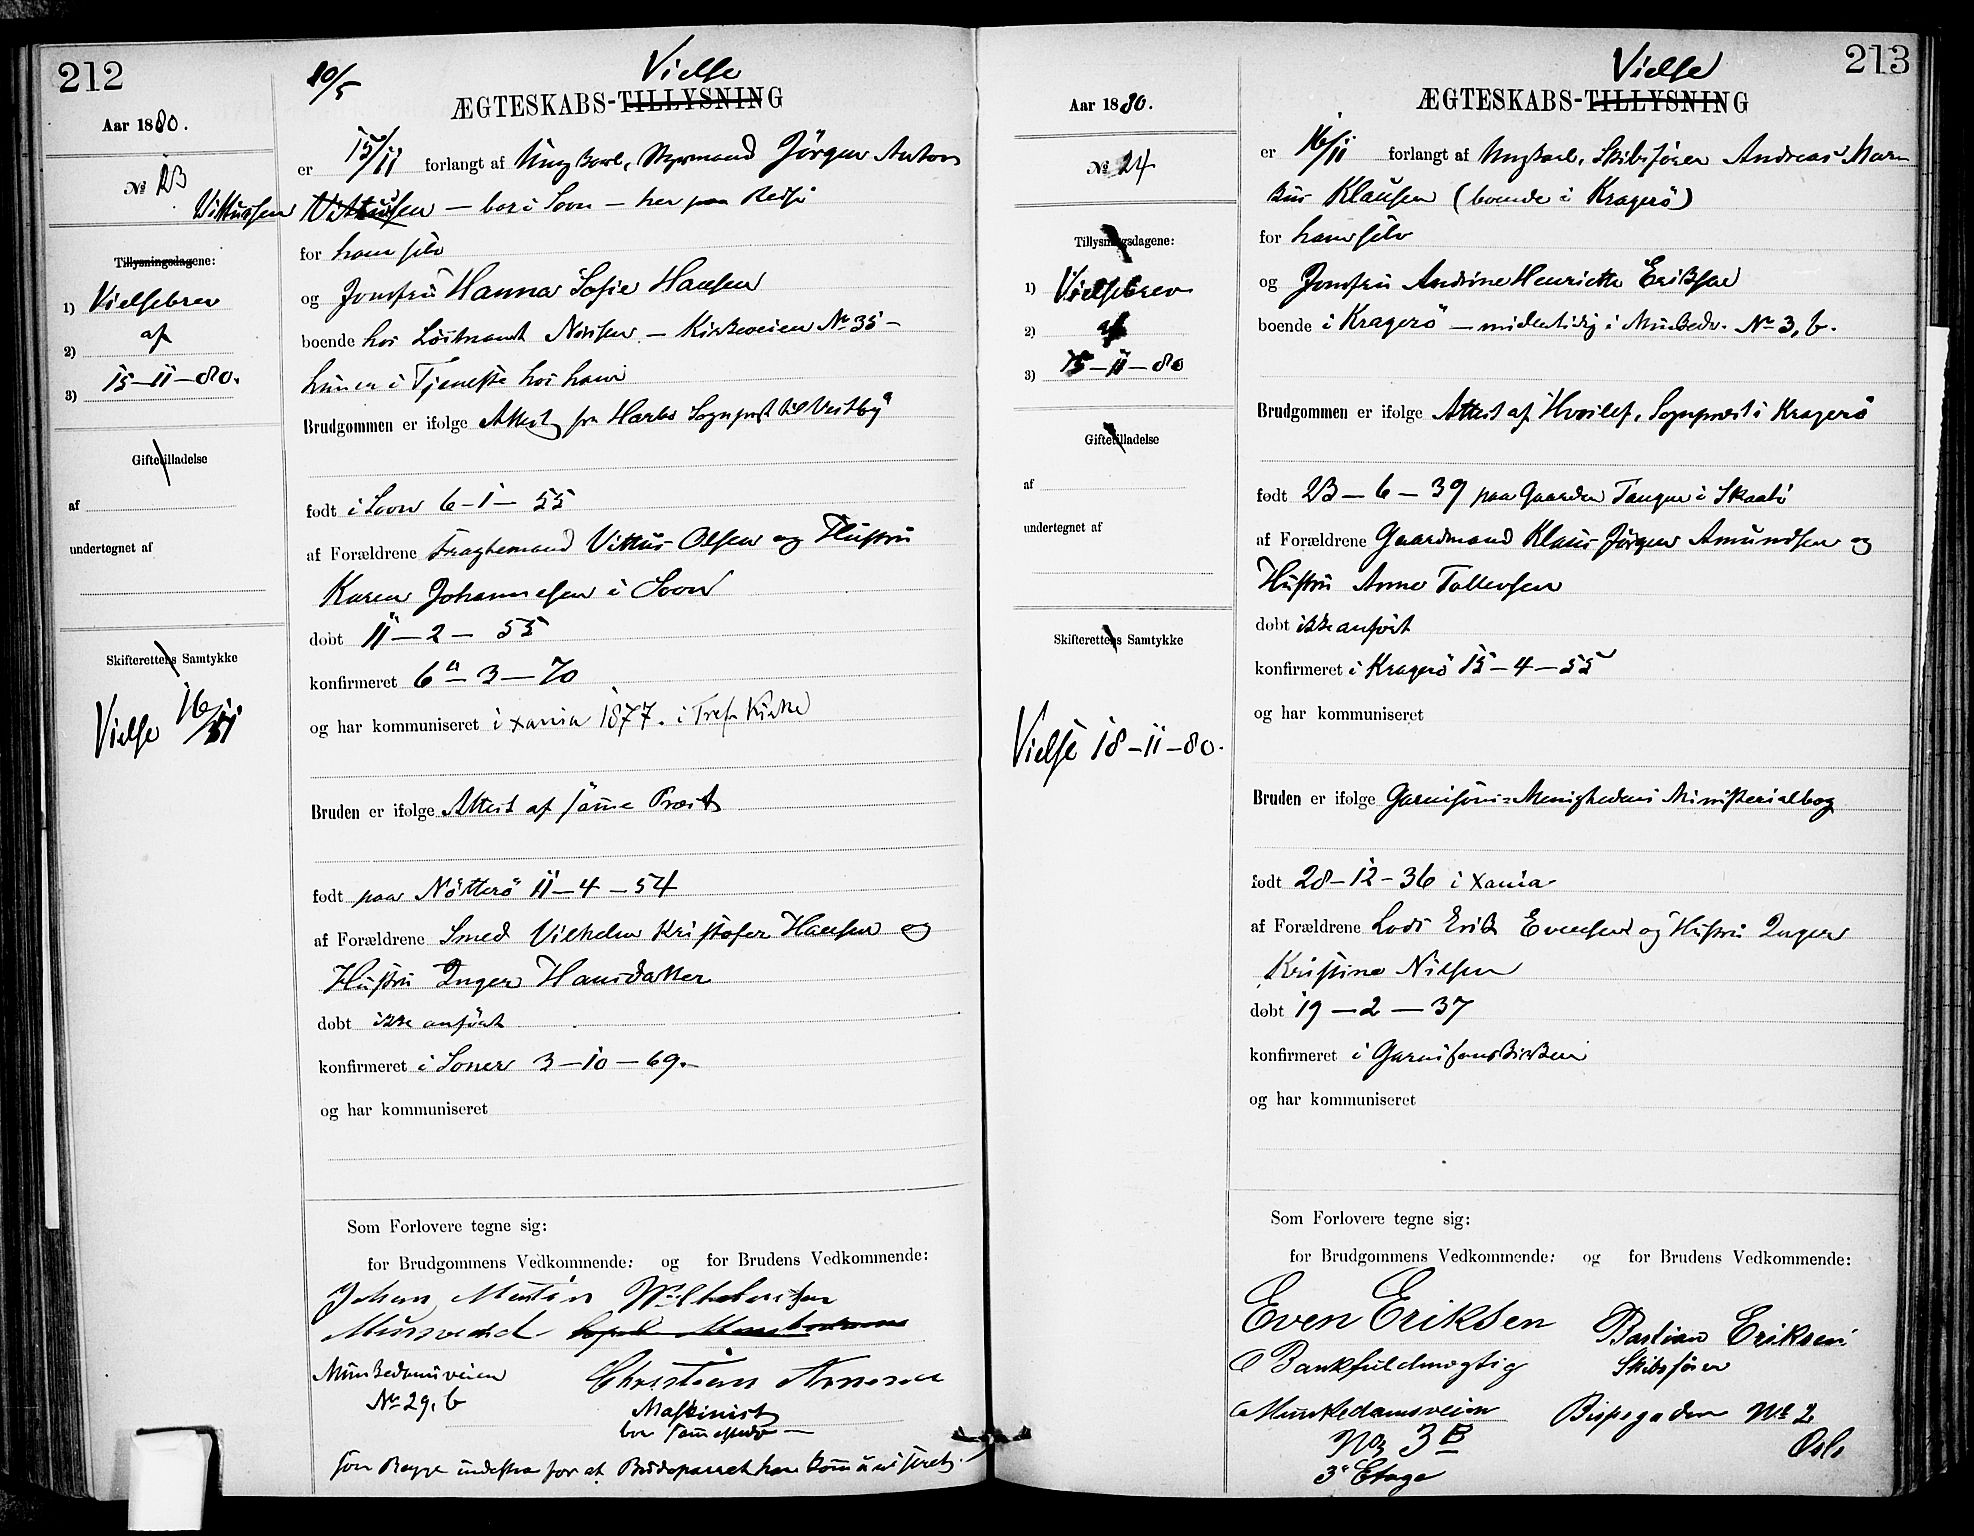 212
Aar 1880.
№ 23
Vittussen
Tillysningsdagene:
1) Vielsebrev
2) af
3) 15-11-80.
Giftetilladelse
af
undertegnet af
Skifterettens Samtykke
Vielse 16/11
80/5
Vielse
ÆGTESKABS-TILLYSNING
er 15/11 forlangt af Ungkarl, Styrmand Jörgen Anton
Vittussen — bor i Soon — her paa Reise
for ham selv
og Jomfru Hanna Sofie Hansen
boende hos Nilsen — Kirkeveien № 35 —
hun er i Tjeneste hos ham
Brudgommen er ifølge Attest fra Sognprest til Vestby
født i Soon 6-1-55
af Forældrene Fragtemand Vittus Olsen og Hustru
Karen Johannesen i Soon
døbt 11-2-55
konfirmeret 6-3-70
og har kommuniseret i Xania 1877. i Tref. Kirke
Bruden er ifølge Attest af samme Præst
født paa Nötterö 11-4-54
af Forældrene Smed Vilhelm Kristofer Hansen og
Hustru Inger Hansdatter
døbt ikke anført
konfirmeret i Soner 3-10-69.
og har kommuniseret
Som Forlovere tegne sig:
for Brudgommens Vedkommende: og for Brudens Vedkommende:
Johan Martin Wilhelmsen
Munkedamsveien Christian Arnesen
№ 29, b Maskinist
bor sammesteds —
som Begge indestaa for at Brudeparret har kommuniseret.
213
Aar 1880.
№ 24
Tillysningsdagene:
1) Vielsebrev
2) af
3) 15-11-80
Giftetilladelse
af
undertegnet af
Skifterettens Samtykke
Vielse 18-11-80.
Vielse
ÆGTESKABS-TILLYSNING
er 16/11 forlangt af Ungkarl, Skibsfører Andreas Mar-
kus Klausen (boende i Kragerö)
for ham selv
og Jomfru Andrine Henriette Eriksen
boende i Kragerö — midlertidig i Munkedv. № 3, b.
Brudgommen er ifølge Attest af Hvoslef, Sognpræst i Kragerö
født 23-6-39 paa Gaarden Tangen i Skaatö
af Forældrene Gaardmand Klaus Jörgen Amundsen og
Hustru Anne Tollevsen
døbt ikke anført
konfirmeret i Kragerö 15-4-55
og har kommuniseret
Bruden er ifølge Garnisons-Menighedens Ministerialbog
født 28-12-36 i Xania
af Forældrene Lods Erik Evensen og Hustru Inger
Kristine Nilsen
døbt 19-2-37
konfirmeret i Garnisonskirken
og har kommuniseret
Som Forlovere tegne sig:
for Brudgommens Vedkommende: og for Brudens Vedkommende:
Even Eriksen Bastian Eriksen
Bankfuldmægtig Skibsfører
Munkedamsveien Bispegaden № 2
No 3B Oslo
3' Etage